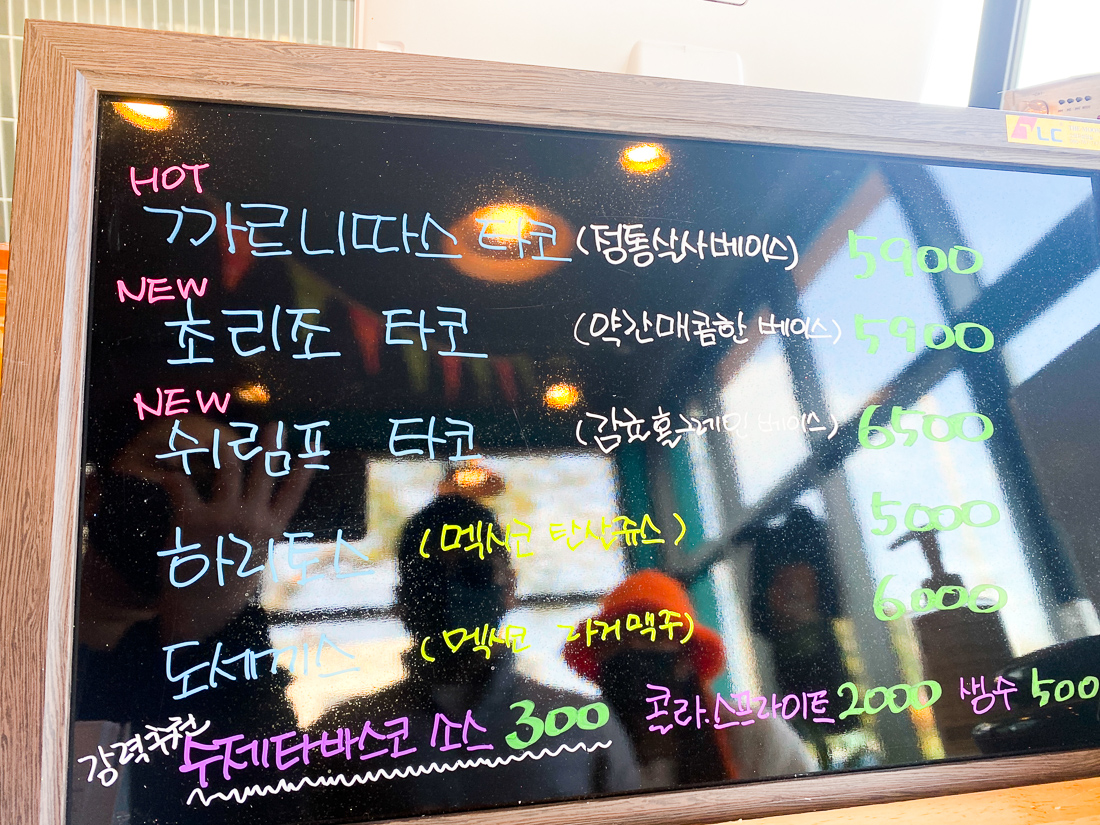 HOT
까르니따스 타코 (정통살사베이스) 5900
NEW
초리조 타코 (약간매콤한 베이스) 5900
NEW
쉬림프 타코 (감귤홀스레인 베이스) 6500
하리토스 (멕시코 탄산쥬스) 5000
도세끼스 (멕시코 라거맥주) 6000
강력추천 수제타바스코 소스 300
콜라.스프라이트 2000 생수 500